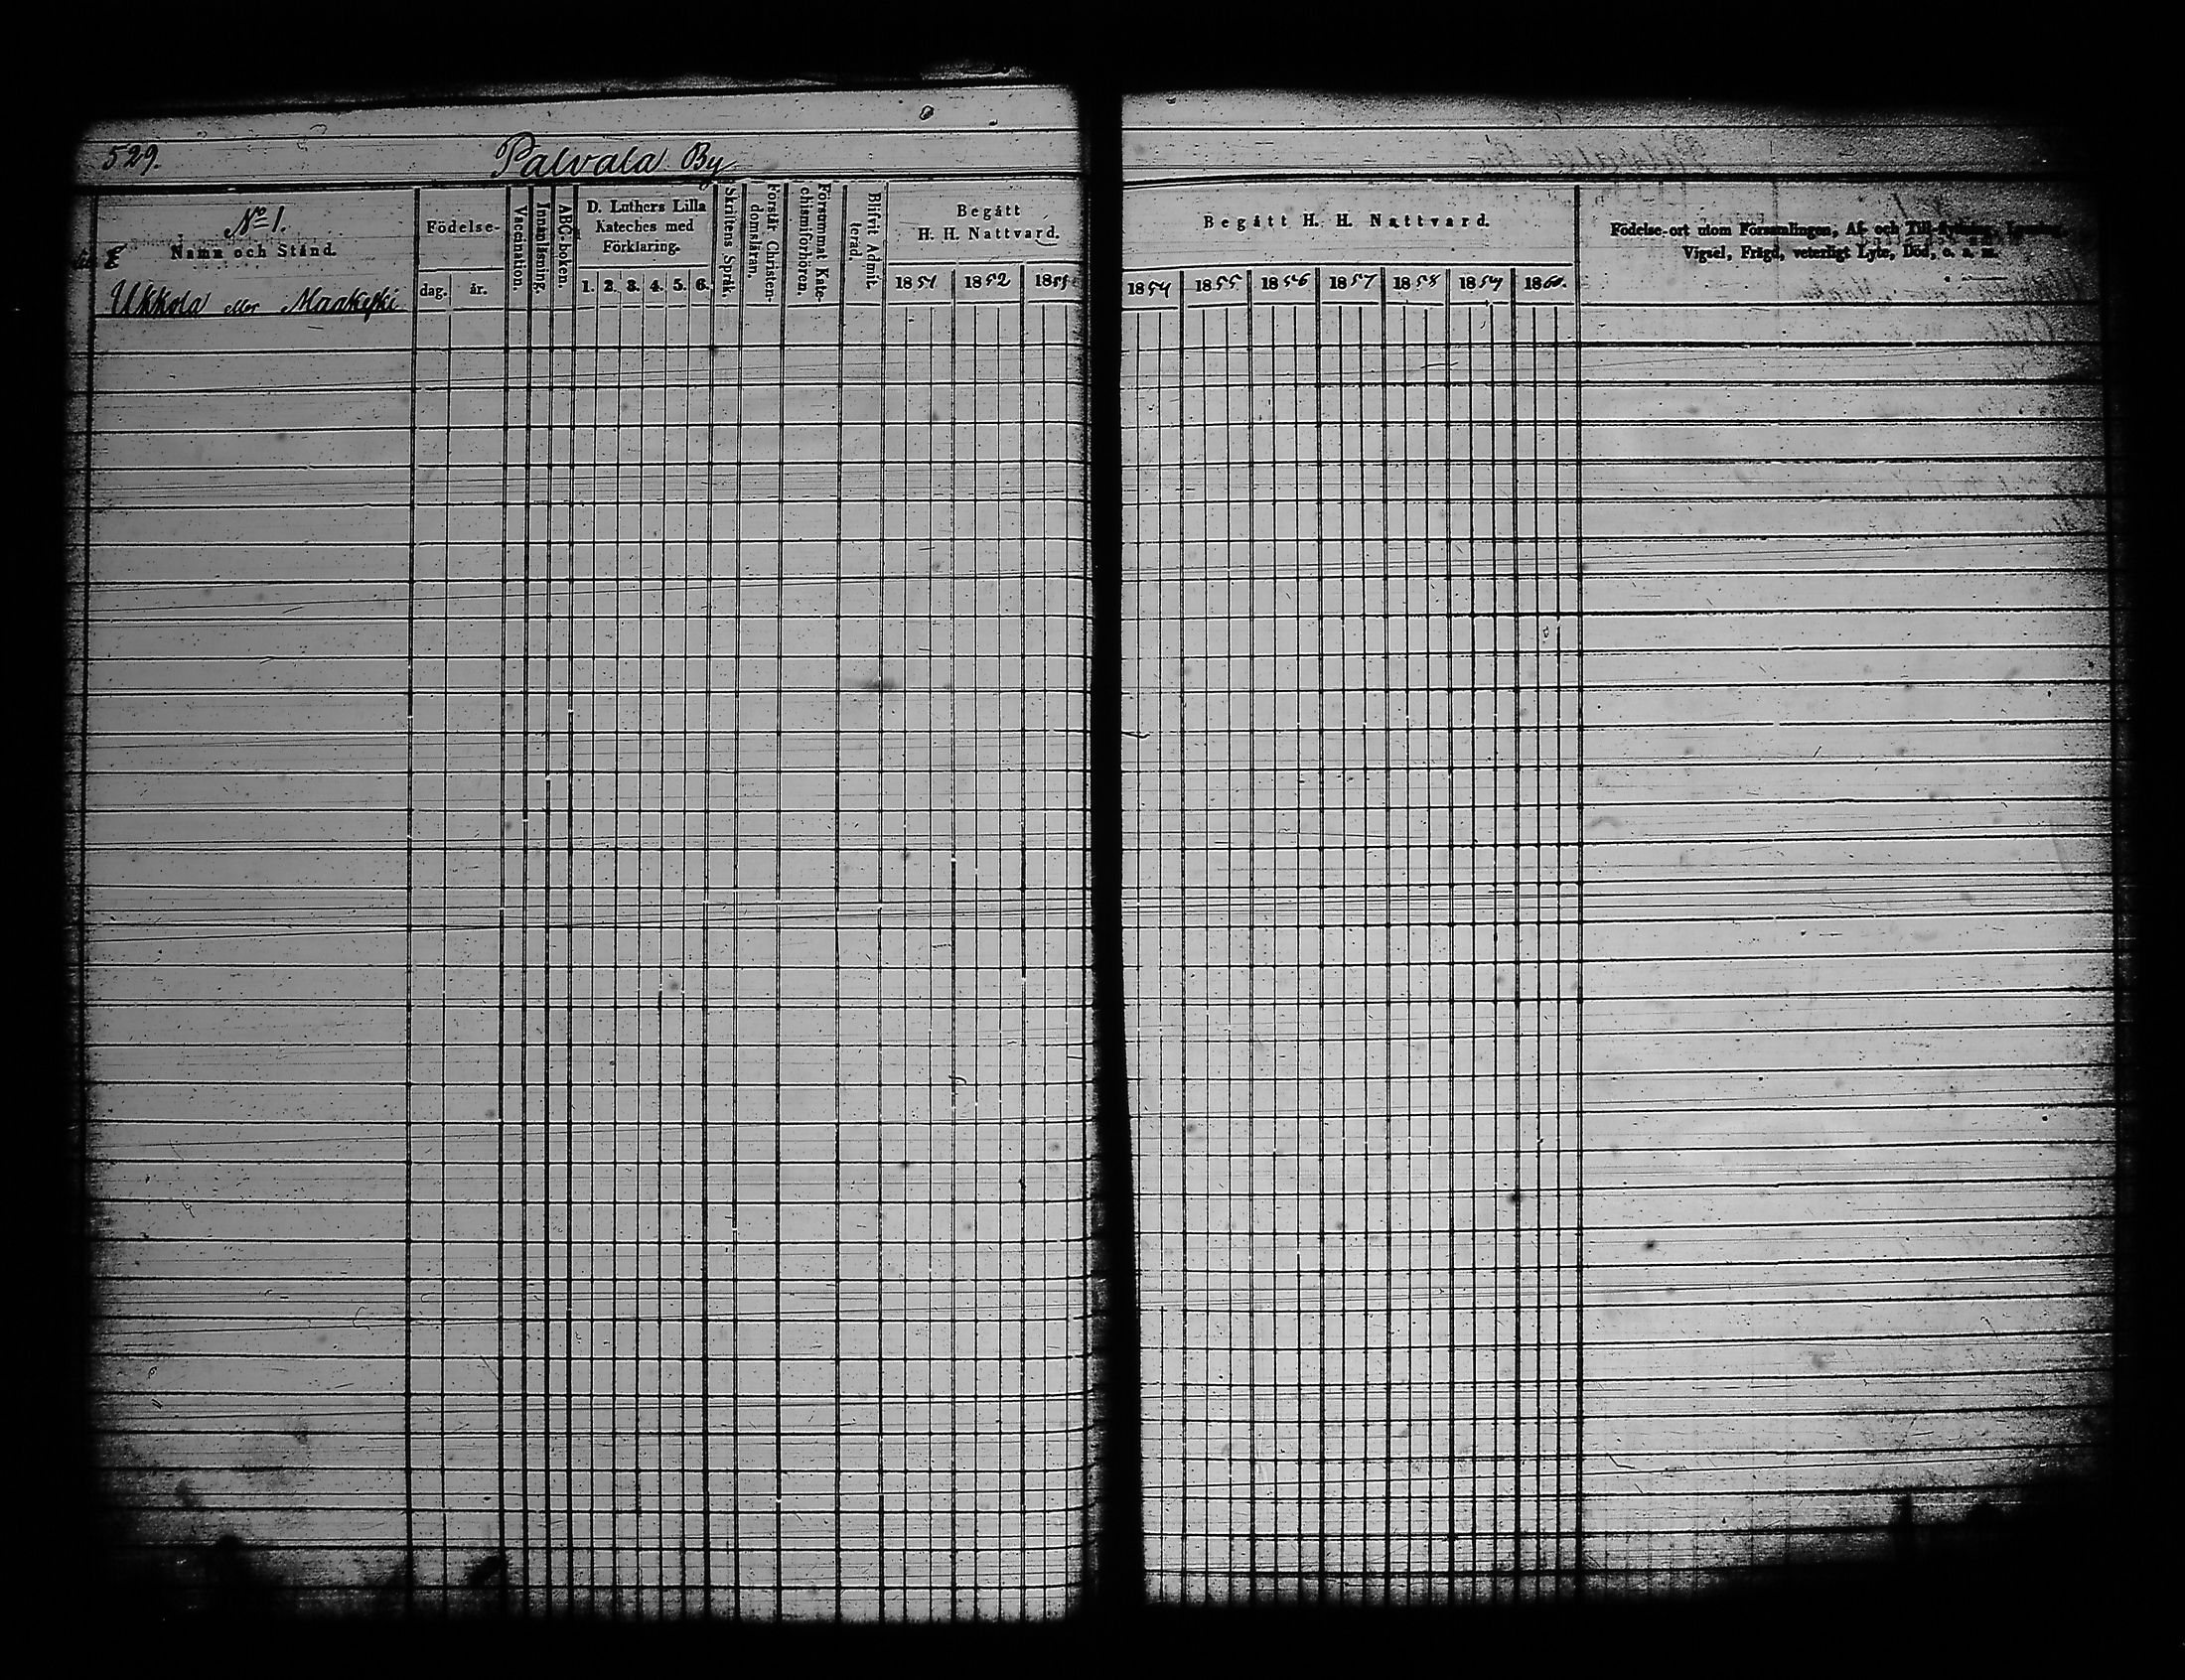 529. Palvala By
No 1.
Namn och Stånd.
Ukkola eller Maakeski
Födelse-
dag. år.
Vaccination.
Innanläsning.
ABC-boken.
D. Luthers Lilla
Kateches med
Förklaring.
1. 2. 3. 4. 5. 6.
Skriftens Språk.
Förstår Christen-
domsläran.
Försummat Kate-
chismiförhören.
Blifvit Admit-
terad.
Begått
H. H. Nattvard.
1851 1852
Begått H. H. Nattvard.
1854 1855 1856 1857 1858 1859 1860.
Födelse-ort utom Församlingen, Af- och Till-flyttning,
Vigsel, Frägd, veterligt Lyte, Död, o. s. m.